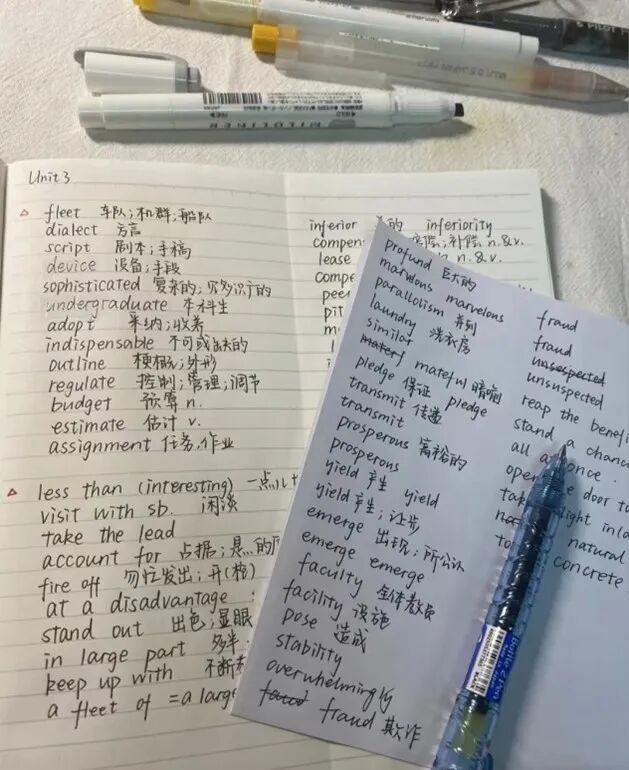 Unit 3
fleet 车队;机群;船队
dialect 方言
script 剧本;手稿
device 设备;手段
sophisticated 复杂的;
undergraduate 本科生
adopt 采纳;收养
indispensable 不可或缺的
outline 梗概;外形
regulate 控制;管理;调节
budget 预算 n.
estimate 估计 v.
assignment 任务,作业
less than (interesting) 一点儿
visit with sb. 闲谈
take the lead
account for 占据;是
fire off 勿忙发出;开(枪)
at a disadvantage
stand out 出色;显眼
in large part 多半
keep up with 不断
a fleet of = a large
inferior 的 inferiority
补偿 n.&v.
lease n.&v.
profund 巨大的
marvelous
parallolism 并列
laundry 洗衣房
similar
mateful 晴朗
pledge 保证 pledge
transmit 传递
transmit
prosperous 富裕的
prosperous
yield 产生 yield
yield 产生;让步
emerge 出现;所公认
emerge emerge
faculty 全体教员
facility 设施
pose 造成
stability
overwhelmingly
fraud 欺诈
fraud
fraud
unsuspected
reap the benefi
stand a chanc
all a once
ope e door t
natural
concrete
MILDLINER
PILOT